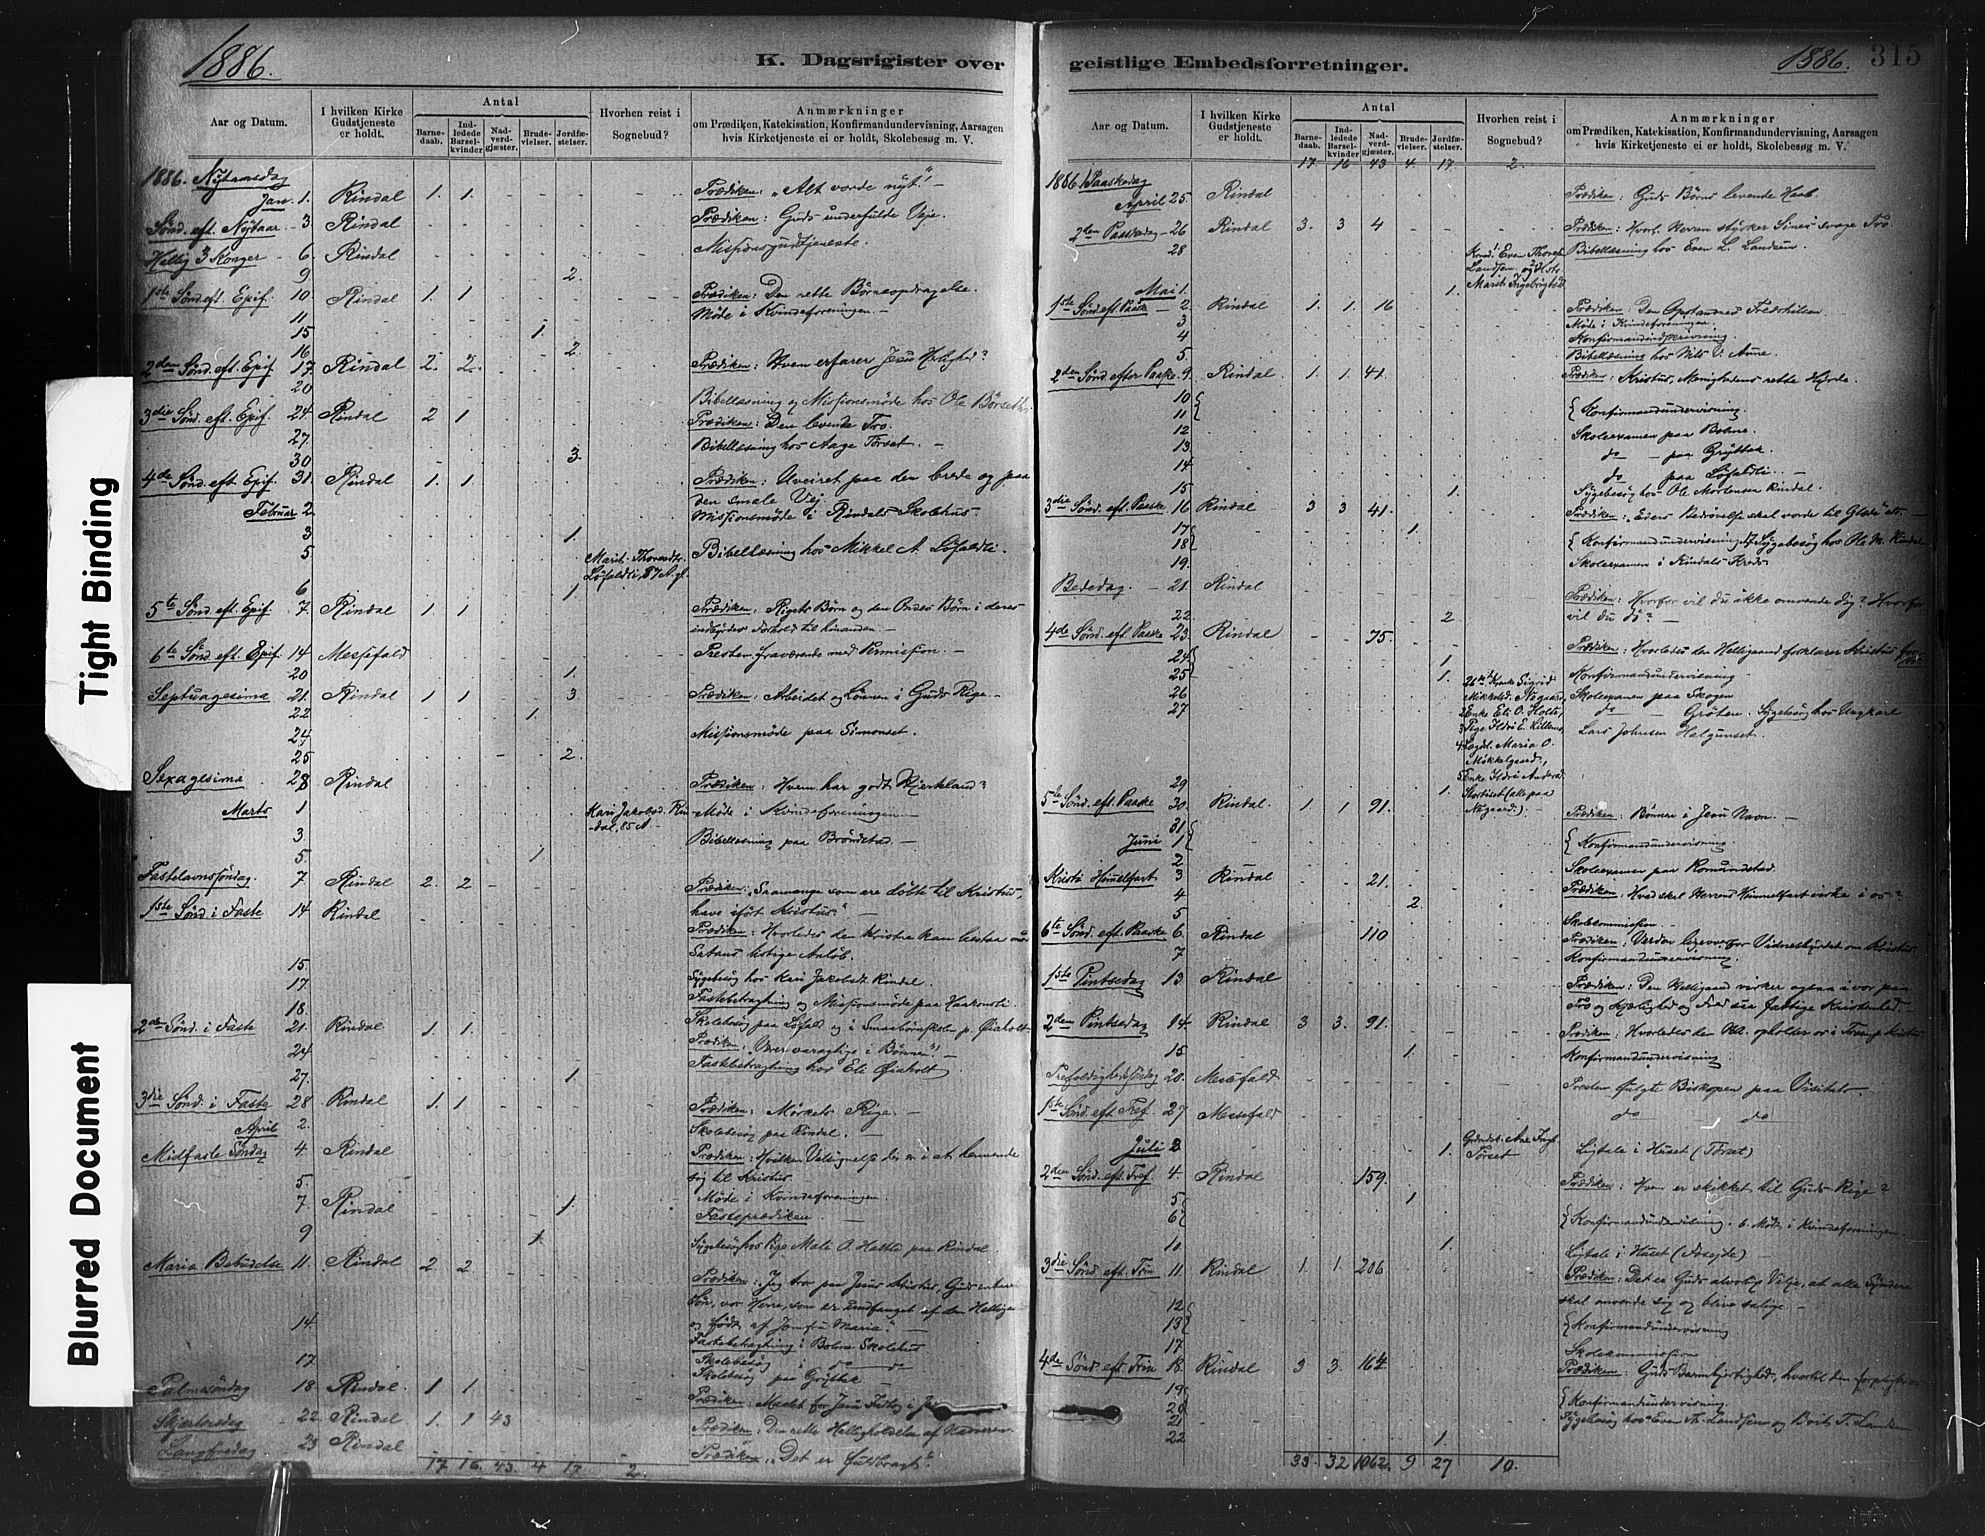 1886.
K. Dagsrigister over
Antal
Aar og Datum.
I hvilken Kirke Gudstjeneste er holdt.
Barnedaab.
Indledede Barselkvinder
Nadverdgjæster.
Brudevielser.
Jordfæstelser.
Hvorhen reist i Sognebud?
Anmærkninger
om Prædiken, Katekisation, Konfirmandundervisning, Aarsagen
hvis Kirketjeneste ei er holdt, Skolebesøg m. V.
1886. Nytaarsdag
Jan. 1. Rindal 1. 1. Prædiken: "Alt vorde nyt!" –
Sønd. eft. Nytaar 3 Rindal Prædiken: Guds underfulde Veje.
Hellig 3 Konger 6 Rindal Missionsgudstjeneste.
9 2.
1ste Sønd. eft. Epif. 10. Rindal 1. 1 Prædiken: Den rette Børneopdragelse.
11 Møde i Kvindeforeningen. –
15 1.
16 2.
2den Sønd. eft. Epif. 17. Rindal 2. 2. Prædiken: Hvem erfarer Jesu Herlighed?
20 Bibellæsning og Missionsmøde hos Ole Børseth.
3die Sønd. eft. Epif. 24 Rindal 2 1 Prædiken: Den levende Tro.
27. Bibellæsning hos Aage Torset. –
30 3.
4de Sønd. eft. Epif. 31 Rindal 1. 1. Prædiken: Uveiret paa den brede og paa
den smale Vej.
Februar 2 Missionsmøde i Rindals Skolehus.
3 1.
5 Marit Thorsdtr. Løfaldli, 87 A. gl. Bibellæsning hos Mikkel A. Løfaldli.
6 1
5te Sønd. eft. Epif. 7 Rindal 1 1 Prædiken: Rigets Børn og den Ondes Børn i deres
indbyrdes Forhold til hinanden. –
6te Sønd. eft. Epif. 14 Messefald Presten fraværende med Permission. –
20 1.
Septuagesima 21. Rindal 1 1 3 Prædiken: Arbeidet og Lønnen i Guds Rige. –
22 1.
24 Missionsmøde paa Simonset.
25 2.
Sexagesima 28 Rindal Prædiken: Hvem har godt Hjerteland?
Marts 1 Kari Jakobsd. Rindal, 85 A – Møde i Kvindeforeningen –
3. Bibellæsning paa Brøndstad.
5. 1
Fastelavnssøndag. 7 Rindal 2. 2 Prædiken: "Saamange som ere døbte til Kristus,
have iført Kristus." –
1ste Sønd. i Faste 14 Rindal Prædiken: Hvorledes den Kristne kan bestaa mod
Satans listige Anløb.
15. Sygebesøg hos Kari Jakobsdt. Rindal.
17 Fastebetragtning og Missionsmøde paa Haakonsli.
18. Skolebesøg paa Løfald og i Smaabørnskolen p. Øiaholt
2den Sønd. i Faste 21. Rindal 1 1. Prædiken: "Vær varagtige i Bønnen." –
24 Fastebetragtning hos Eli Øiaholt
27. 1.
3die Sønd. i Faste 28 Rindal 1. 1 Prædiken: Mørkets Rige. –
April 2. Skolebesøg paa Rindal. –
Midfaste Søndag 4 Rindal Prædiken: Hvilken Velsignelse der er i at henvende
sig til Kristus –
5. Møde i Kvindeforeningen.
7 Rindal 1 Fasteprædiken. –
9 1 Sygebesøg hos Pige Mate O. Hatle paa Rindal.
Maria Bebudelse 11. Rindal 2 2. Prædiken: Jeg tror paa Jesus Kristus, Guds enbaarne
Søn, vor Herre, som er undfanget af den Hellige
og født af Jomfru Maria. –
14. Fastebetragtning i Bolme Skolehus
Skolebesøg i do do
17. Skolebesøg paa Grytbak. –
Palmesøndag 18 Rindal. 1 1
Skjærtorsdag 22 Rindal 1. 1 43 Prædiken: Den rette Helligholdelse af Nadveren.
Langfredag 23 Rindal Prædiken: "Det er fuldbragt."
17 16. 43. 4 17 2.
geistlige Embedsforretninger.
1886. 315
Antal
Aar og Datum.
I hvilken Kirke Gudstjeneste er holdt.
Barnedaab.
Indledede Barselkvinder
Nadverdgjæster.
Brudevielser.
Jordfæstelser.
Hvorhen reist i Sognebud?
Anmærkninger
om Prædiken, Katekisation, Konfirmandundervisning, Aarsagen
hvis Kirketjeneste ei er holdt, Skolebesøg m. V.
17 16 43 4 17. 2
1886 1. Paaskedag
April 25 Rindal Prædiken: Guds Børns levende Haab.
2den Paaskedag 26 Rindal 3. 3 4 Prædiken: Hvorl. Herren styrker Sines svage Tro.
28 Bibellæsning hos Even L. Landsem.
Mai 1. 1.
1ste Sønd. eft. Paaske 2 Rindal 1. 1. 16 Prædiken: Den Opstandnes Fredshilsen
3 Møde i Kvindeforeningen.
4 Konfirmandindskrivning.
5. Bibellæsning hos Nils U. Aune.
2den Sønd. efter Paaske 9. Rindal 1. 1. 41. Prædiken: Kristus, Menighedens rette Hyrde.
10
11 { Konfirmandundervisning.
12 Skoleexamen paa Bolme.
13 do – paa Grytbak.
14 do paa Løfaldli. –
15 1. Sygebesøg hos Ole Mortensen Rindal.
3die Sønd. eft. Paaske 16 Rindal 3 3 41. Prædiken: Eders Bedrøvelse skal vorde til Glæde etc –
17 1.
18 { Konfirmandundervisning Sygebesøg hos Ole M. Rindal
19. Skoleexamen i Rindals Kreds
Bededag. – 21. Rindal Prædiken: Hvorfor vil du ikke omvende dig? Hvorfor
vil du dø? –
22. 2
4de Sønd. eft. Paaske 23. Rindal – – 75 Prædiken: Hvorledes den Helligaand forklarer Kristus for os.
24 1
25 1. Konfirmandundervisning
26 Skoleexamen paa Skogen
27 do – Grøten. Sygebesøg hos Ungkarl
Lars Johnsen Halgunset.
29 1.
5te Sønd. eft. Paaske 30. Rindal 1 1 91. Prædiken: Bønnen i Jesu Navn. –
31
Juni 1 { Konfirmandundervisning.
2 Skoleexamen paa Romundstad.
Kristi Himmelfart 3 Rindal 21. Prædiken: Hvad skal Herrens Himmelfart virke i os?
4 2.
5 Skolekommission.
6te Sønd. eft. Paaske 6. Rindal 110 Prædiken: Verden ligeoverfor Vidnesbyrdet om Kristus.
7 Konfirmandundervisning.
1ste Pintsedag 13. Rindal Prædiken: Den Helligaand virker ogsaa i vor paa
Tro og Kjærlighed og Fred saa fattige Kristenhed. –
2den Pintsedag 14 Rindal 3 3. 91. Prædiken:
15 1. Konfirmandundervisning
Trefoldighedssøndag 20. Messefald Presten fulgte Biskopen paa Visitats. –
1ste Sønd. eft. Tref. 27 Messefald do do
Juli 3 1. Ligtale i Huset (Torset)
2den Sønd. eft. Tref. 4. Rindal 159. Prædiken: Hvem er skikket til Guds Rige?
5 1
6 { Konfirmandundervisning. 6. Møde i Kvindeforeningen
10. 1. Ligtale i Huset –
3die Sønd. eft. Trin 11 Rindal 1 1. 206 Prædiken: Det er Guds alvorlige Vilje, at alle Syndere
skal omvende sig og blive salige –
12
13 { Konfirmandundervisning
17 Skolekommission
4de Sønd. eft. Trin 18. Rindal 3 3. 164 Prædiken: Guds Barmhjertighed, hvortil den forpligter os
19
20 { Konfirmandundervisning.
21 Sygebesøg hos Even
22 1.
33. 32 1062. 9 27 10.
Tight Binding
Blurred Document